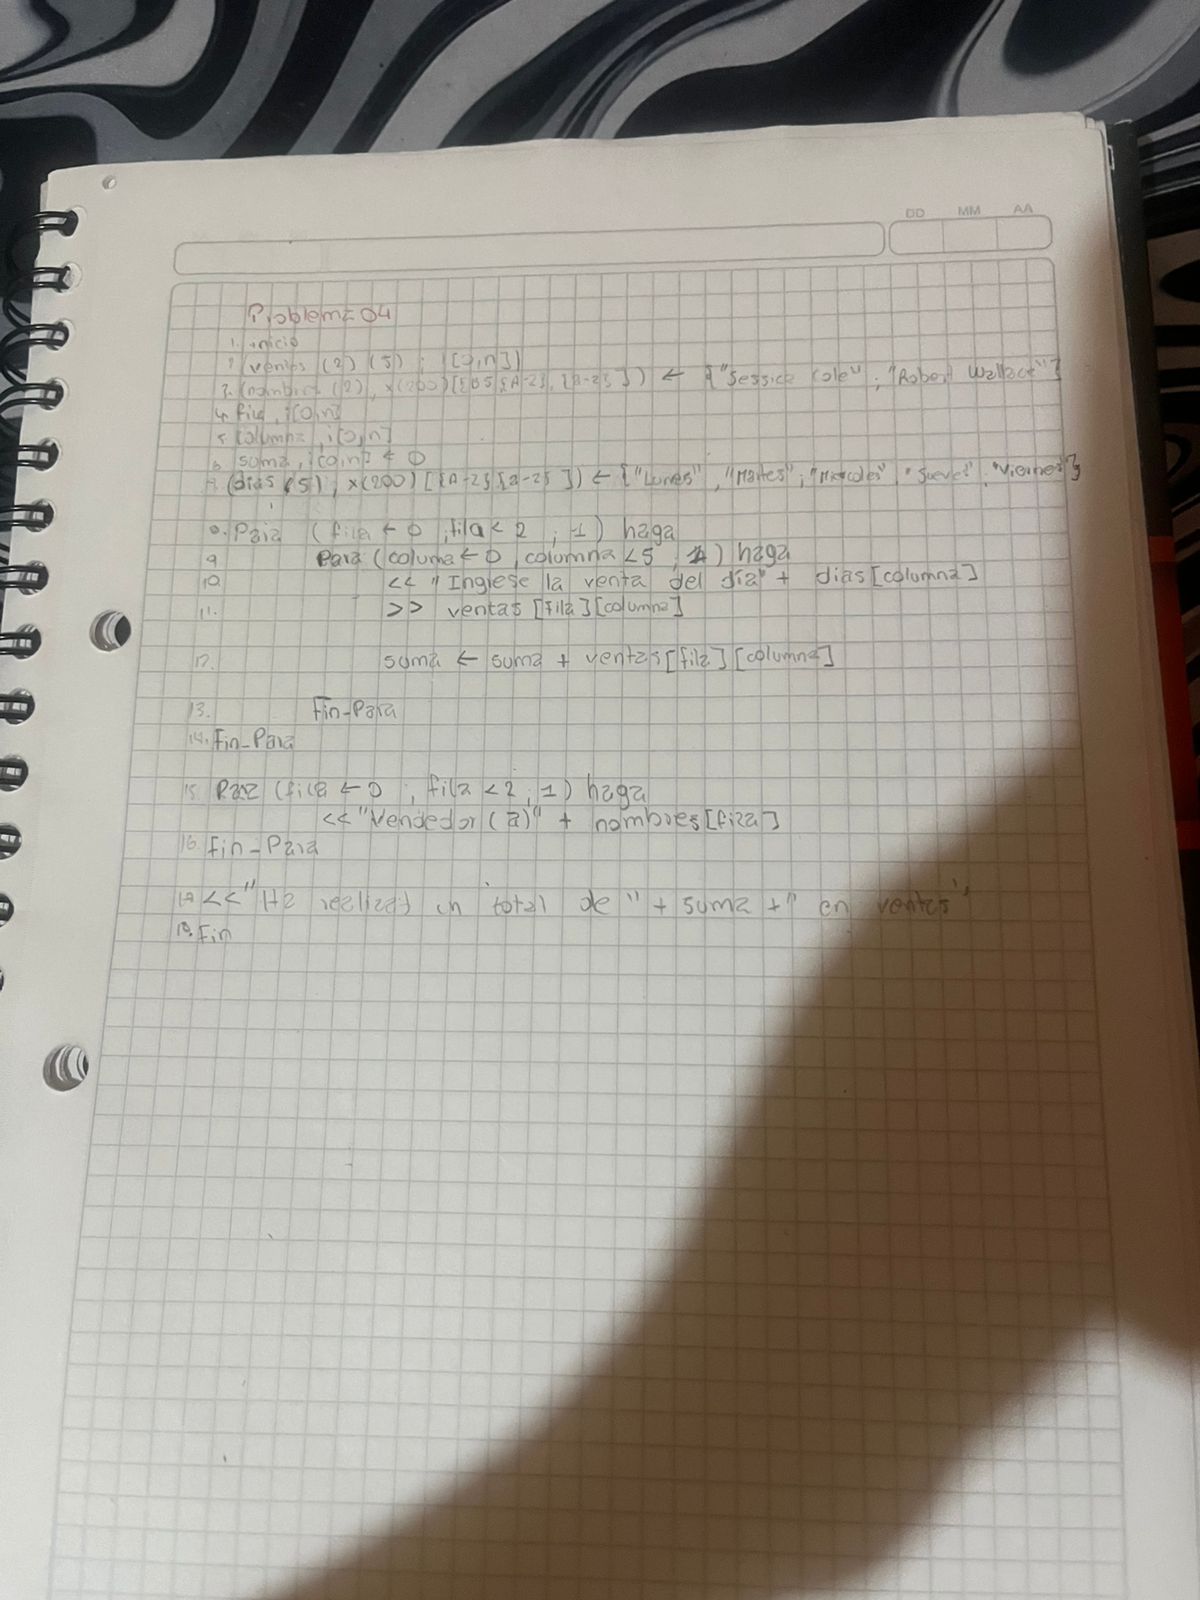 DD MM AA
Problema 04
1. inicio
2. (ventas (2) (5) ; i[0,n])
3. (nombres (2), x(200)[{05{A-Z}, {a-z} ]) ← {"Jessica Cole" ; "Robert Wallace"}
4. fila, i[0,n]
5. Columna, i[0,n]
6. suma, i[0,n] ← 0
7. (dias (5) ; x(200) [{A-Z}{a-z} ]) ← {"Lunes" , "Martes" ; "Miercoles" , "Jueves" ; "Viernes"}
8. Para (fila ← 0 ; fila < 2 ; 1) haga
9 Para (columa ← 0 , columna < 5 ; 1) haga
10. << "Ingrese la venta del día" + dias[columna]
11. >> ventas [fila][columna]
12. suma ← suma + ventas[fila][columna]
13. Fin-Para
14. Fin-Para
15. Para (fila ← 0 ; fila < 2 ; 1) haga
<< "Vendedor (a)" + nombres[fila]
16. Fin-Para
17 << "Ha realizado un total de " + suma + " en ventas"
18. Fin